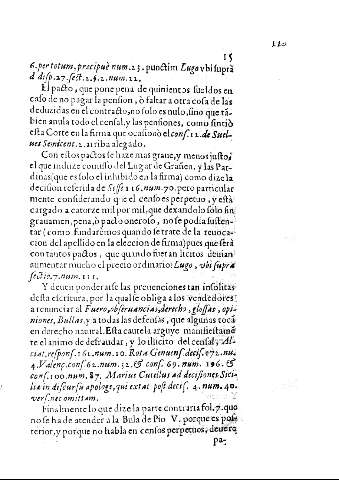 15
6. per totum, præcipuè num. 23. punctim Lugo vbi suprà
d disp. 27. sect. 2. §. 2. num. 22.
El pacto, que pone pena de quinientos sueldos en
caso de no pagar la pension, ò faltar a otra cosa de las
deduzidas en el contracto, no solo es nulo, sino que tã-
bien anula todo el censal, y las pensiones, como sintiò
esta Corte en la firma que ocasionò el cons. 12. de Suel-
ues Semicent. 2. arriba alegado.
Con estos pactos se haze mas graue, y menos justo,
el que induze comisso del Lugar de Grañen, y las Par-
dinas (que es solo el inhibido en la firma) como dize la
decision referida de Sesse 116. num. 70. pero particular
mente considerando que el censo es perpetuo, y està
cargado a catorze mil por mil, que dexandolo solo sin
grauamen, pena, ò pacto oneroso, no se podia susten-
tar (como fundarèmos quando se trate de la reuoca-
cion del apellido en la eleccion de firma) pues que serà
con tantos pactos, que quando fueran licitos deuian
aumentar mucho el precio ordinario: Lugo, vbi supra
sectio. 7. num. 111.
Y deuen ponderarse las preuenciones tan insolitas
desta escritura, por la qual se obliga a los vendedores
a renunciar al Fuero, obseruancias, derecho, glossas, opi-
niones, Bullas, y a todas las defensas, que algunas toca
en derecho natural. Esta cautela arguye manifiestamẽ
te el animo de defraudar, y lo illicito del censal, Al-
ciat. respons. 161. num. 10. Rota Genuens. decis. 172. nu.
4. Valenç. cons. 62. num. 32. & cons. 69. num. 196. &
cons. 100. num. 87. Marius Cutellus ad decisiones Sici-
liæ in discursu apologe, que extat post decis. 4. num. 40.
vers. nec omittam.
Finalmente lo que dize la parte contraria fol. 7. quo
no se ha de atender à la Bula de Pio V. porque es pos-
terior, y porque no habla en censos perpetuos, deuera
pa-